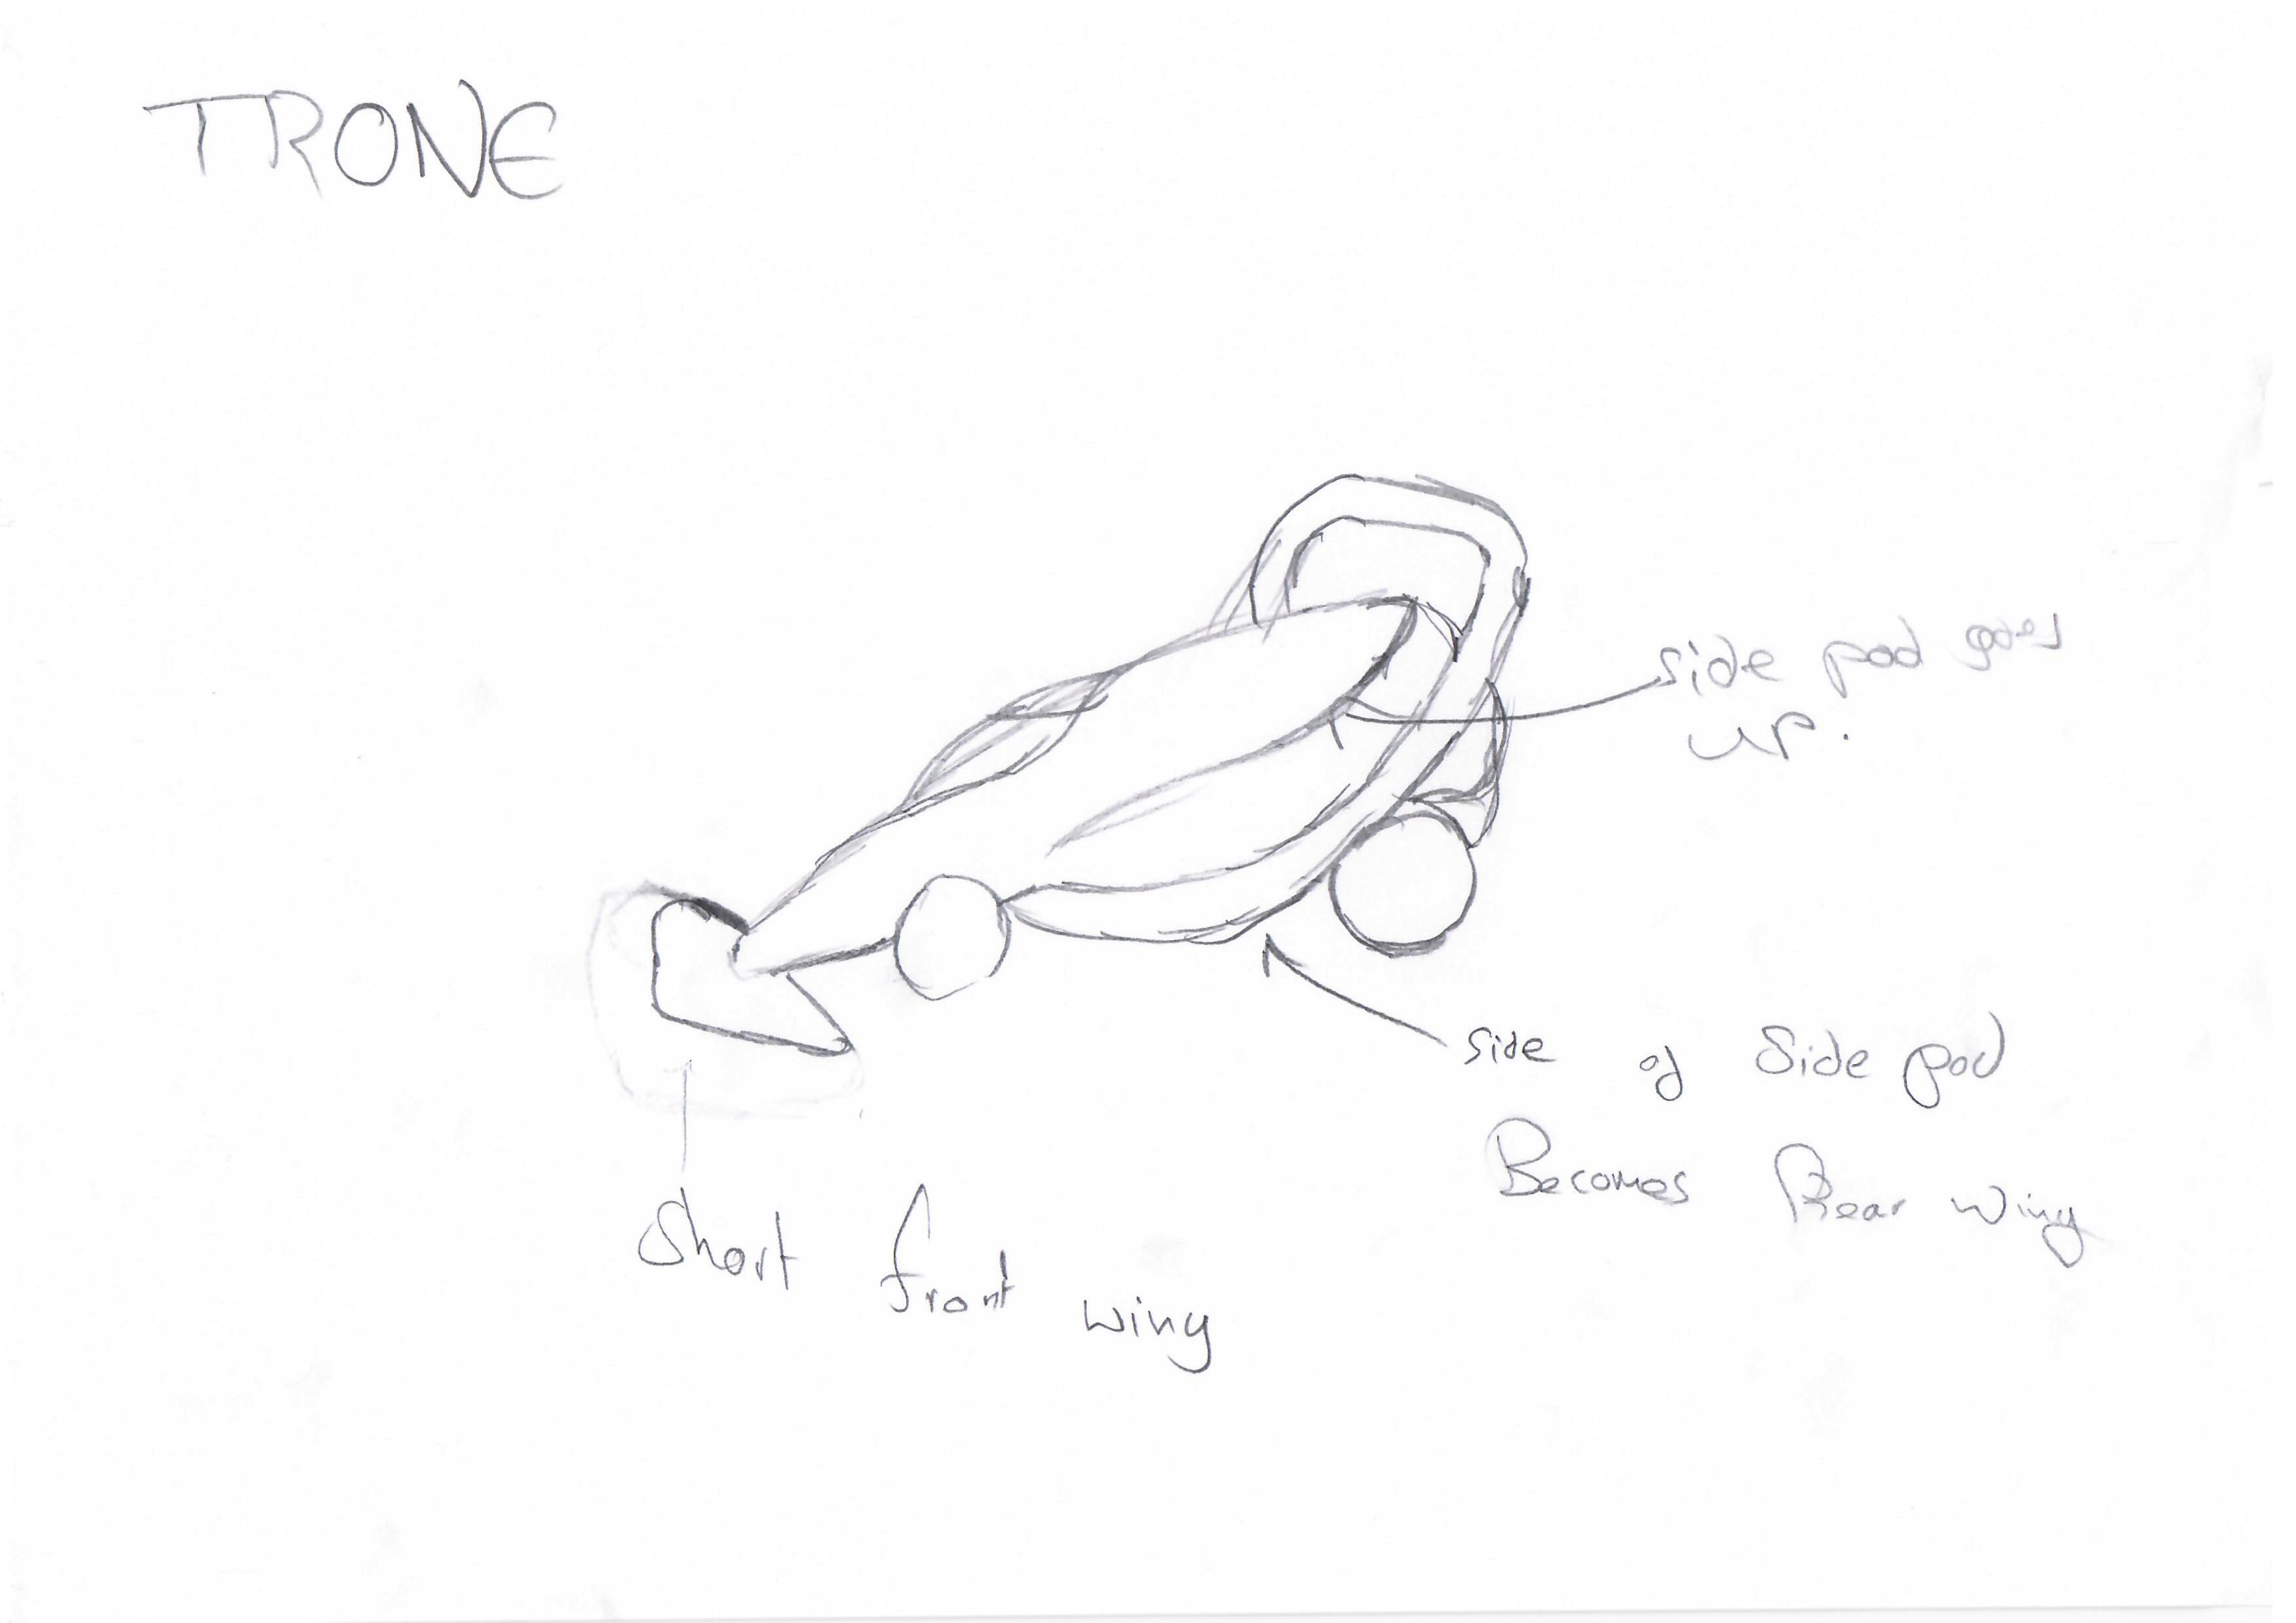 TRONE
side pod goes
up.
Side of Side pod
Becomes Rear wing
Short front wing